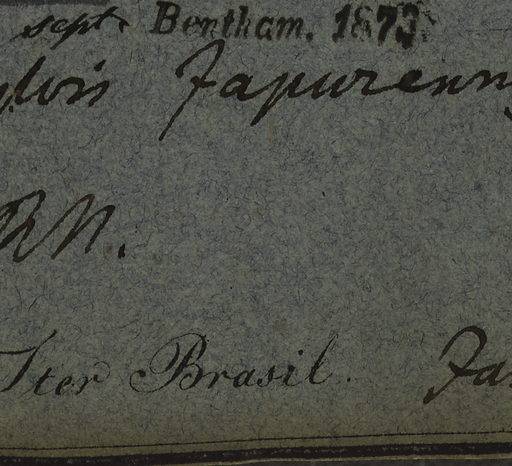 sept. Bentham. 1873.
sylvis Japurenn
RN.
Iter Brasil. Ja